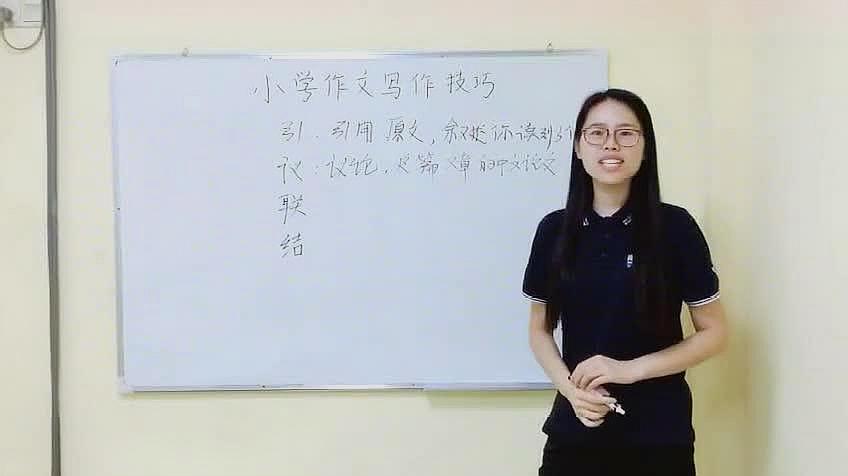 小学作文写作技巧
引：引用原文，叙述你读到
议：议论，是篇文章的中文论文
联
结